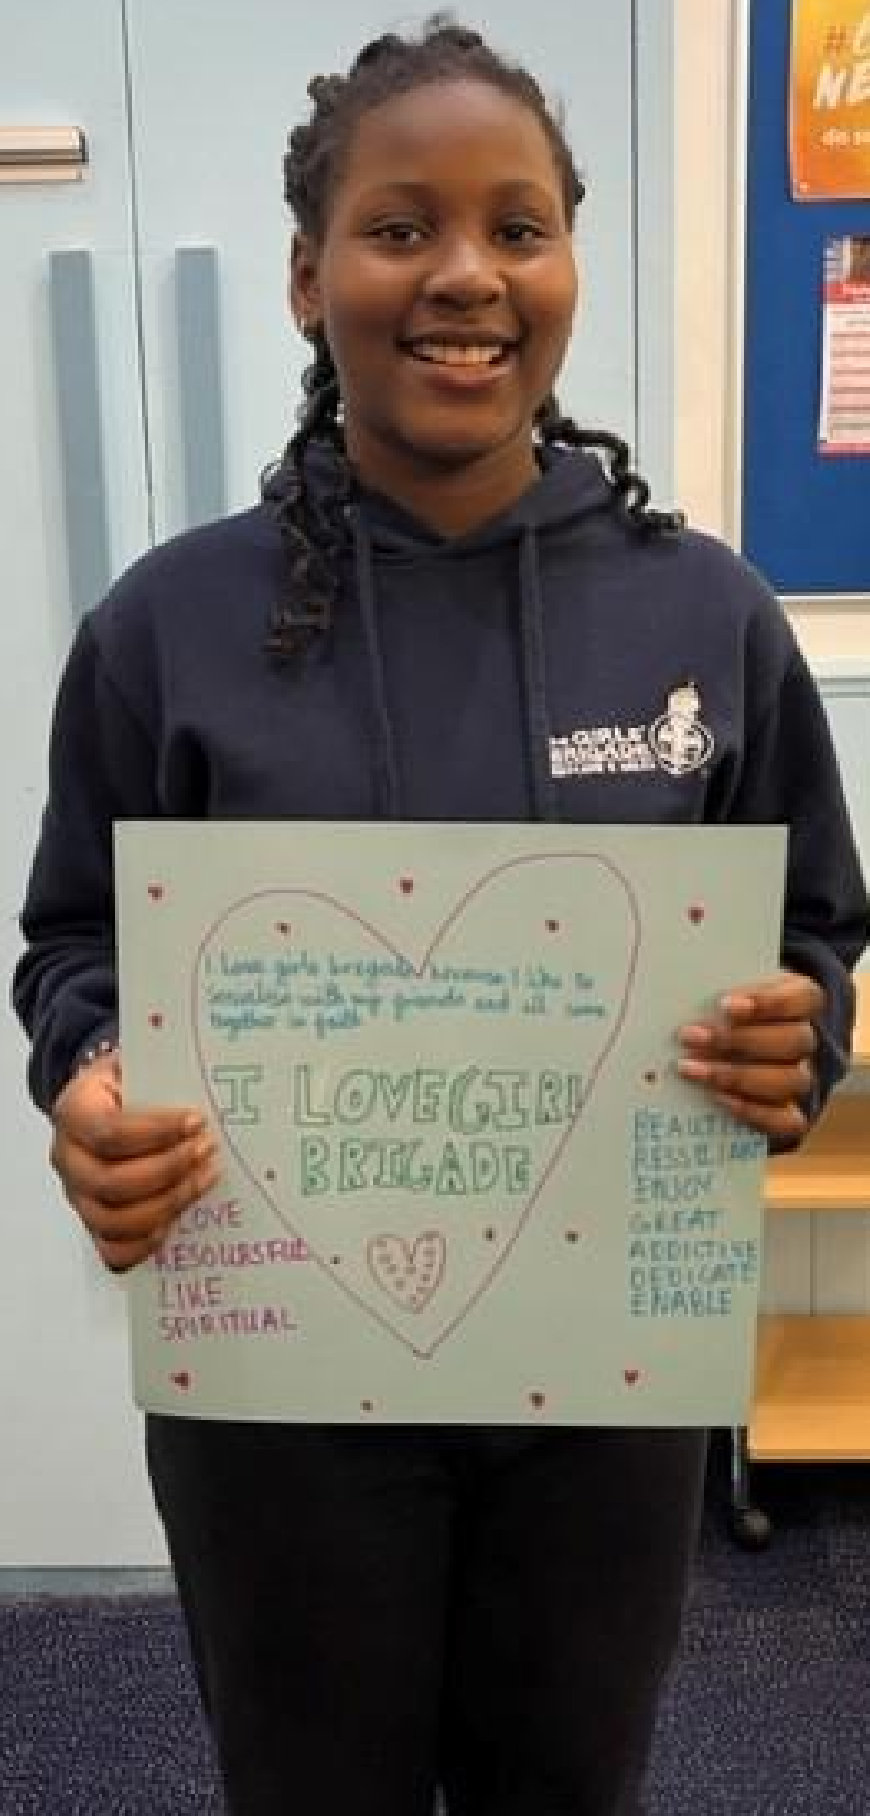 #
NE
do s
THE GIRLS'
BRIGADE
I Love girls brigade because I like to
socialise with my friends and all come
together in faith
I LOVE GIRL
BRIGADE
LOVE
RESOURSFUL
LIKE
SPIRITUAL
BEAUTI
RESSILIANT
ENJOY
GREAT
ADDICTIVE
DEDICATE
ENABLE